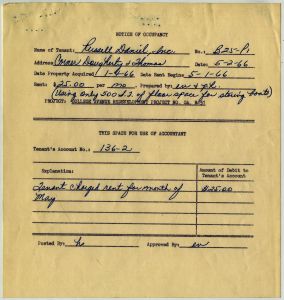 NOTICE OF OCCUPANCY
Name of Tenant: Russell Daniel, Inc. No.: B25-P1
Address: Corner Dougherty & Thomas Date: 5-2-66
Date Property Acquired: 1-4-66 Date Rent Begins: 5-1-66
Rent: $25.00 per mo. Prepared by:
(Using only 500 of floor space for storing boats)
PROJECT: COLLEGE AVENUE REDEVELOPMENT PROJECT NO. GA. R-51
THIS SPACE FOR USE OF ACCOUNTANT
Tenant's Account No.: 136-2
Explanation: Amount of Debit to Tenant's Account
Tenant charged rent for month of $25.00
May
Posted By: Approved By: ew